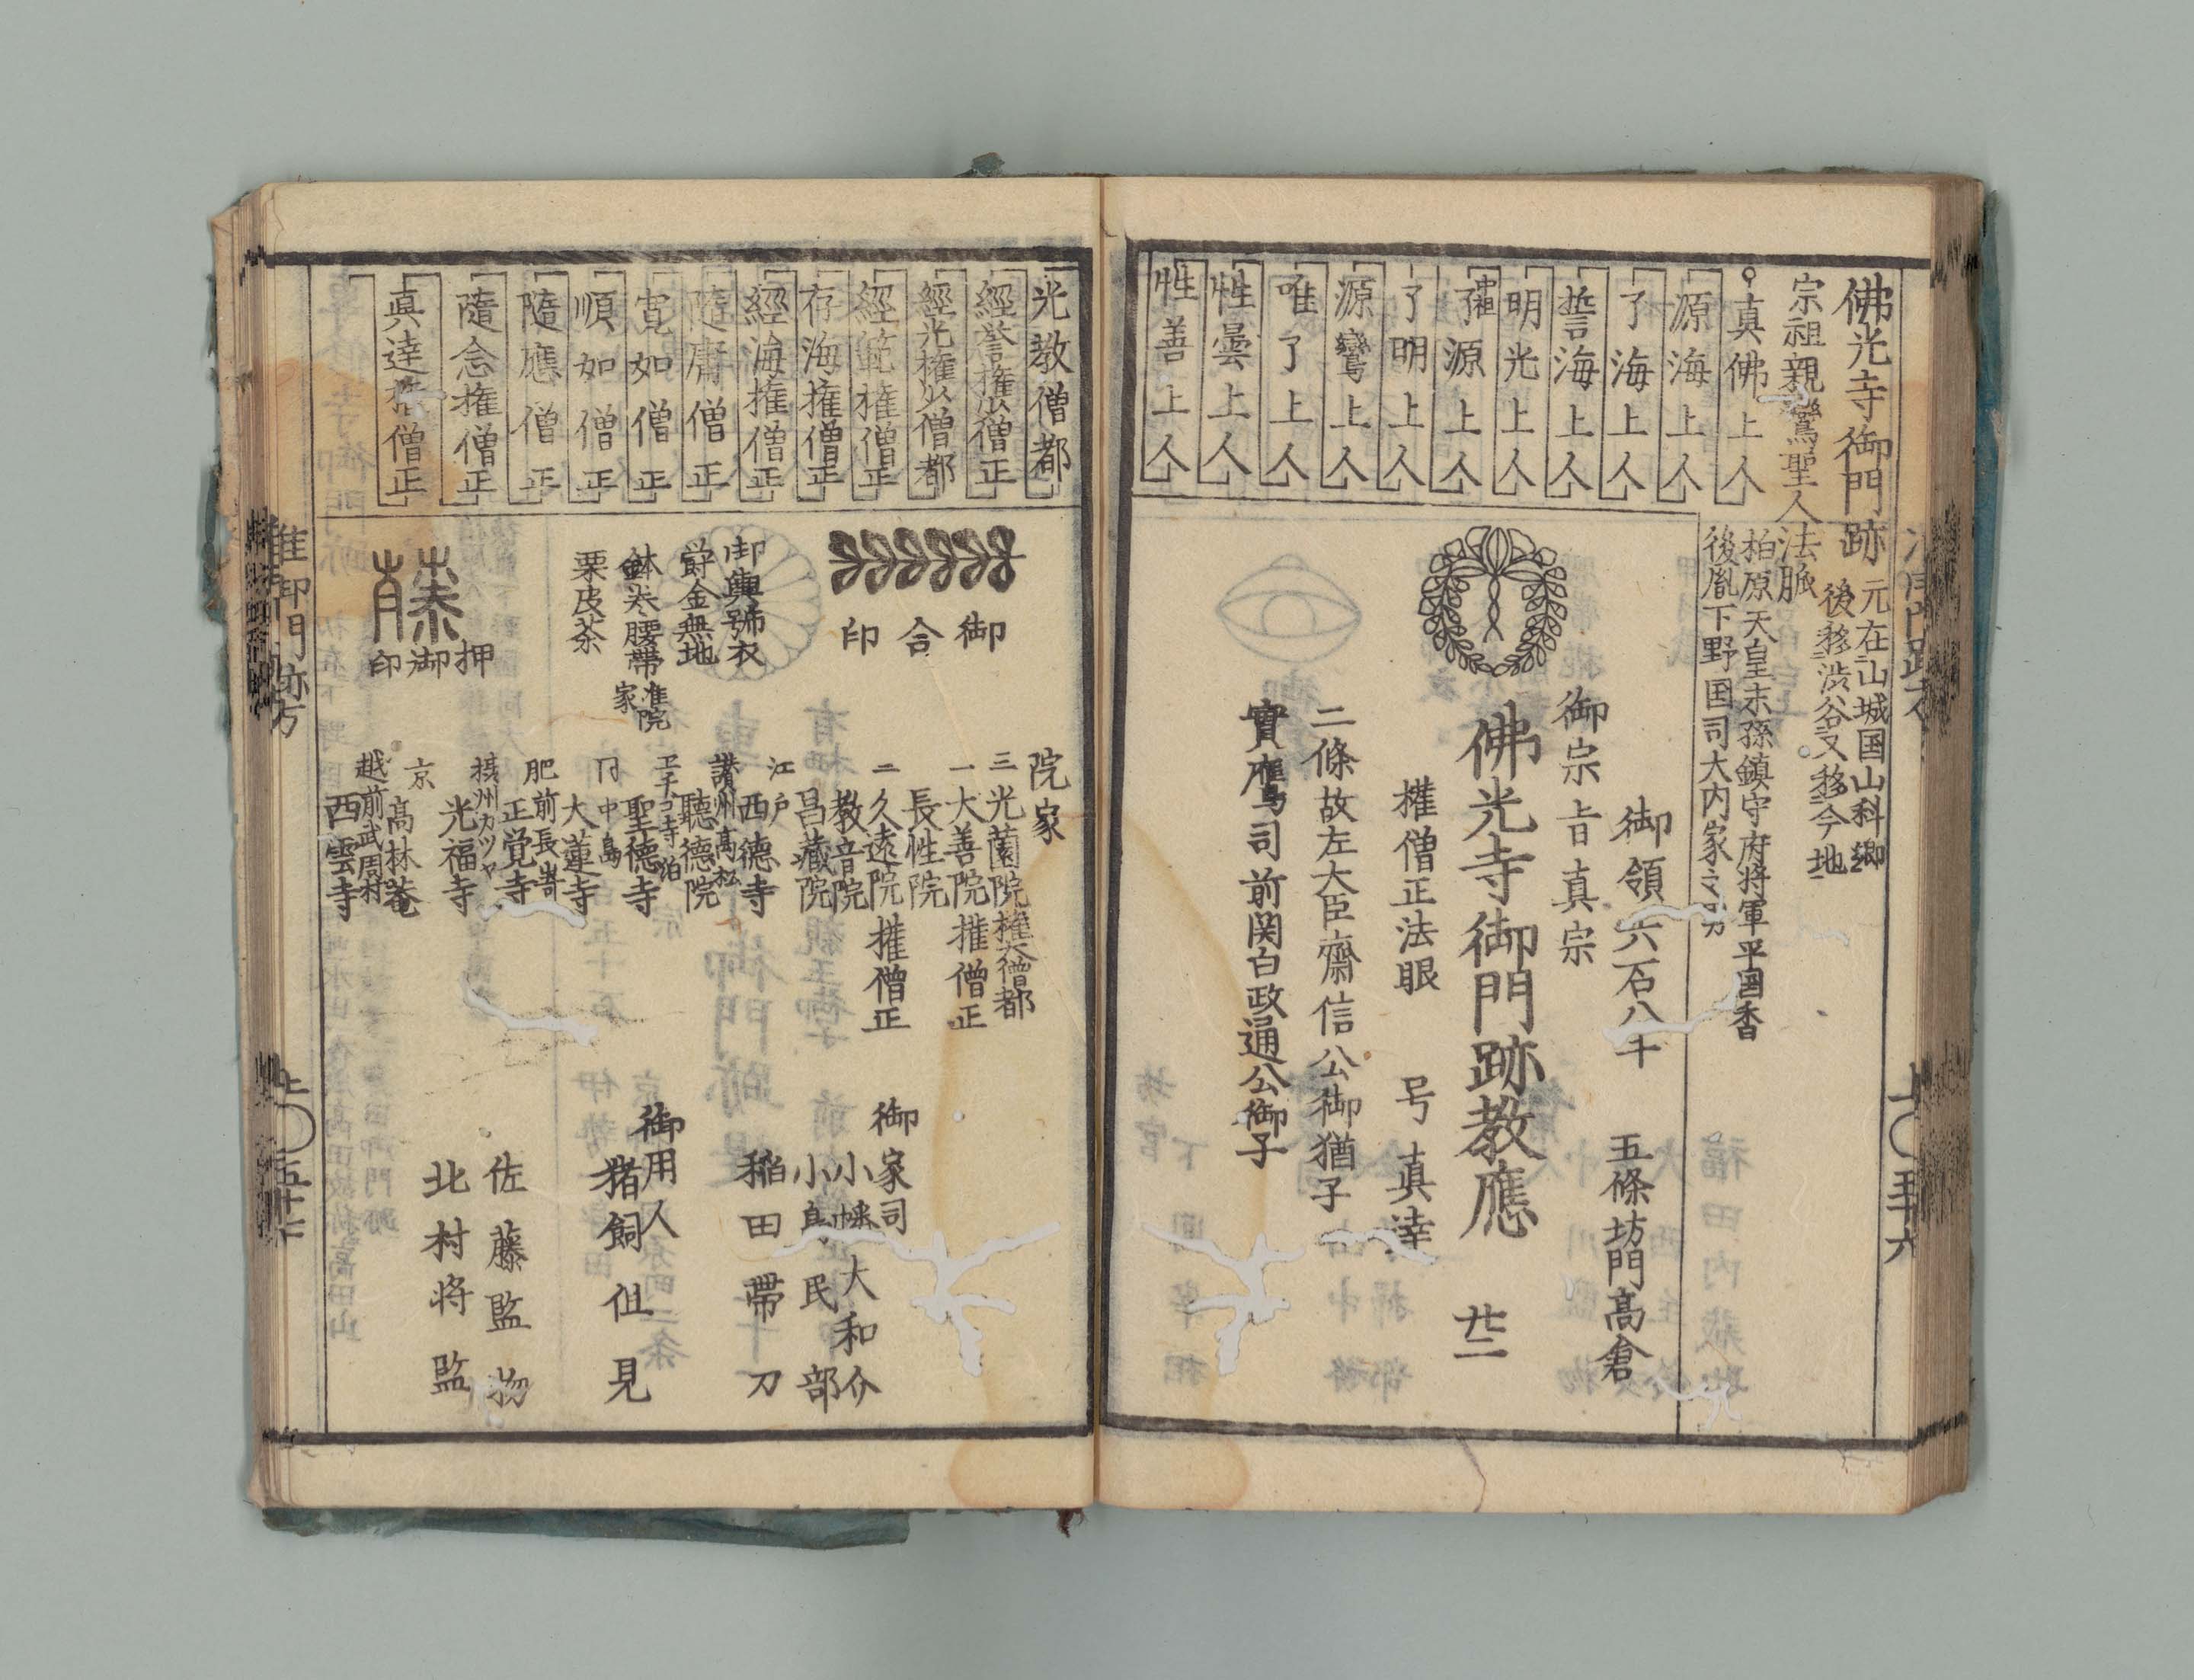 佛光寺御門跡
元在山城国山科郷
後移渋谷又移今地
宗祖親鸞聖人法脈
柏原天皇末孫鎮守府将軍平国香
後胤下野国司大内家之男
真佛上人
源海上人
了海上人
誓海上人
明光上人
中祖
了源上人
了明上人
源鸞上人
唯了上人
性曇上人
性善上人
御領六石八斗
五條坊門高倉
御宗旨真宗
佛光寺御門跡教應
廿二
権僧正法眼
号真達
二條故左大臣齋信公御猶子
實鷹司前関白政通公御子
上〇五十六
光教僧都
經誉権少僧正
經光権少僧都
經範権僧正
存海権僧正
經海権僧正
隨庸僧正
寛如僧正
順如僧正
隨應僧正
隨念権僧正
真達権僧正
御合印
御輿舁衣
欝金無地
鉢巻腰帯
栗皮茶
藤
御押印
院家
三光薗院権大僧都
一大善院権僧正
長性院
二久遠院権僧正
教音院
昌藏院
江戸
西德寺
讃州高松
聽德院
准院家
聖德寺
中島
大蓮寺
肥前長嵜
正覚寺
摂州カツヤ
光福寺
京
髙林菴
越前武周村
西雲寺
御家司
小幡大和介
小島民部
稲田帯刀
御用人
猪飼伹見
佐藤監物
北村将監
准御門跡方
上〇五十七